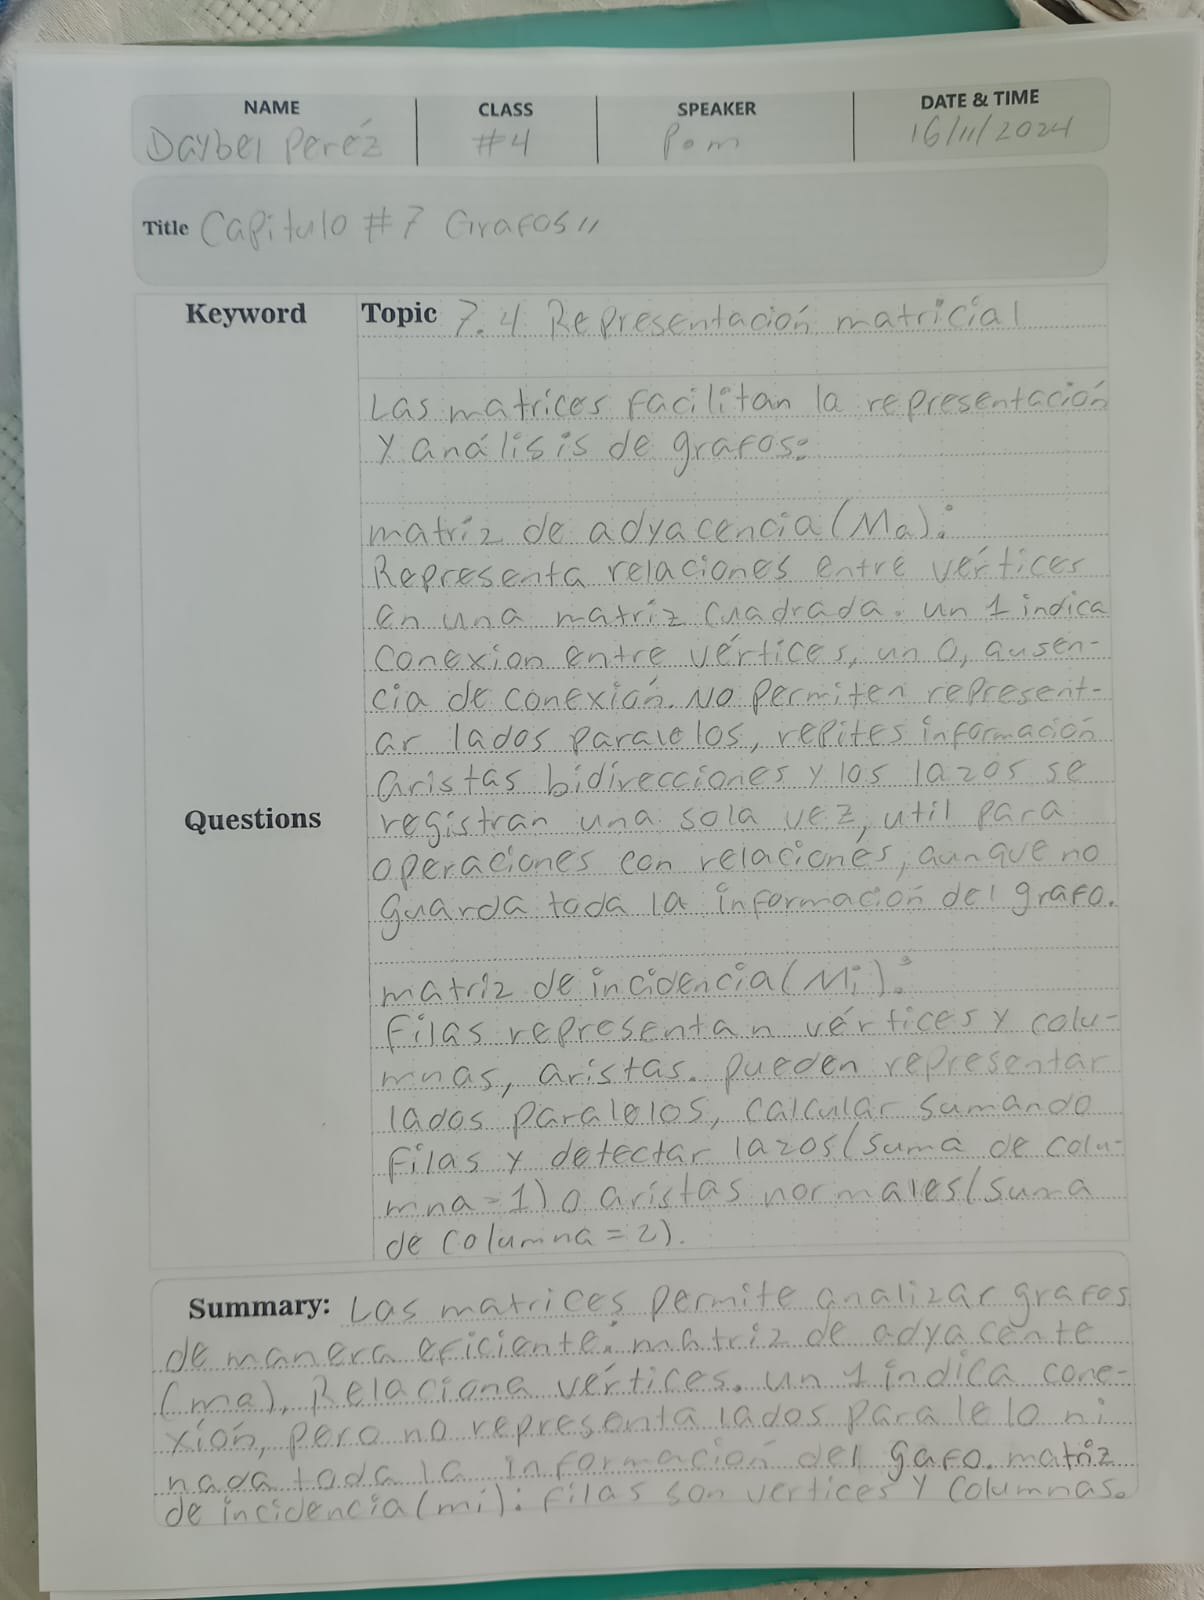 NAME CLASS SPEAKER DATE & TIME
Daybel Peréz #4 Pom 16/11/2024
Title Capitulo #7 Grafos"
Keyword Topic 7.4 Representación matricial
Las matrices facilitan la representación
y análisis de grafos:
matriz de adyacencia (Ma):
Representa relaciones entre vértices
en una matriz cuadrada. un 1 indica
conexion entre vértices, un 0, ausen-
cia de conexión. No permiten represent-
ar lados paralelos, repites información
aristas bidirecciones y los lazos se
Questions registran una sola vez, util para
operaciones con relaciones, aunque no
guarda toda la información del grafo.
matriz de incidencia (Mi):
Filas representan vértices y colu-
mnas, aristas. pueden representar
lados paralelos, calcular sumando
filas y detectar lazos (suma de colu-
mna = 1) o aristas normales (suma
de columna = 2).
Summary: Las matrices permite analizar grafos
de manera eficiente: matriz de adyacente
(ma), Relaciona vértices. un 1 indica cone-
xión, pero no representa lados paralelo ni
nada toda la información del gafo. matriz
de incidencia (mi): filas son vertices y columnas.